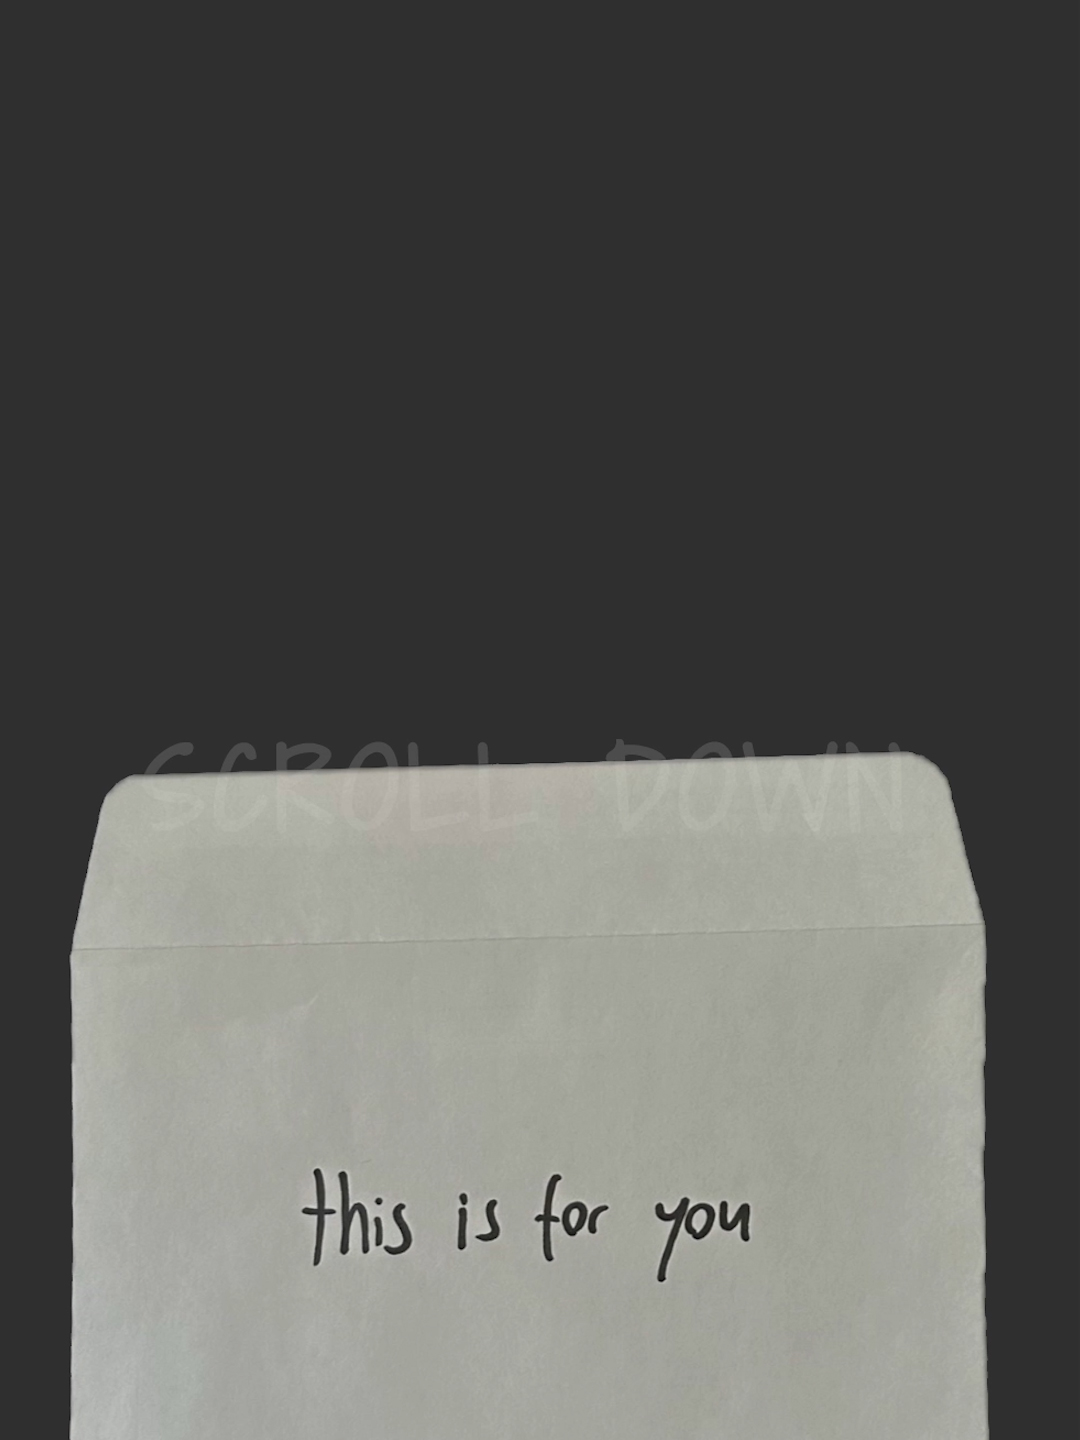 SCROLL DOWN
this is for you